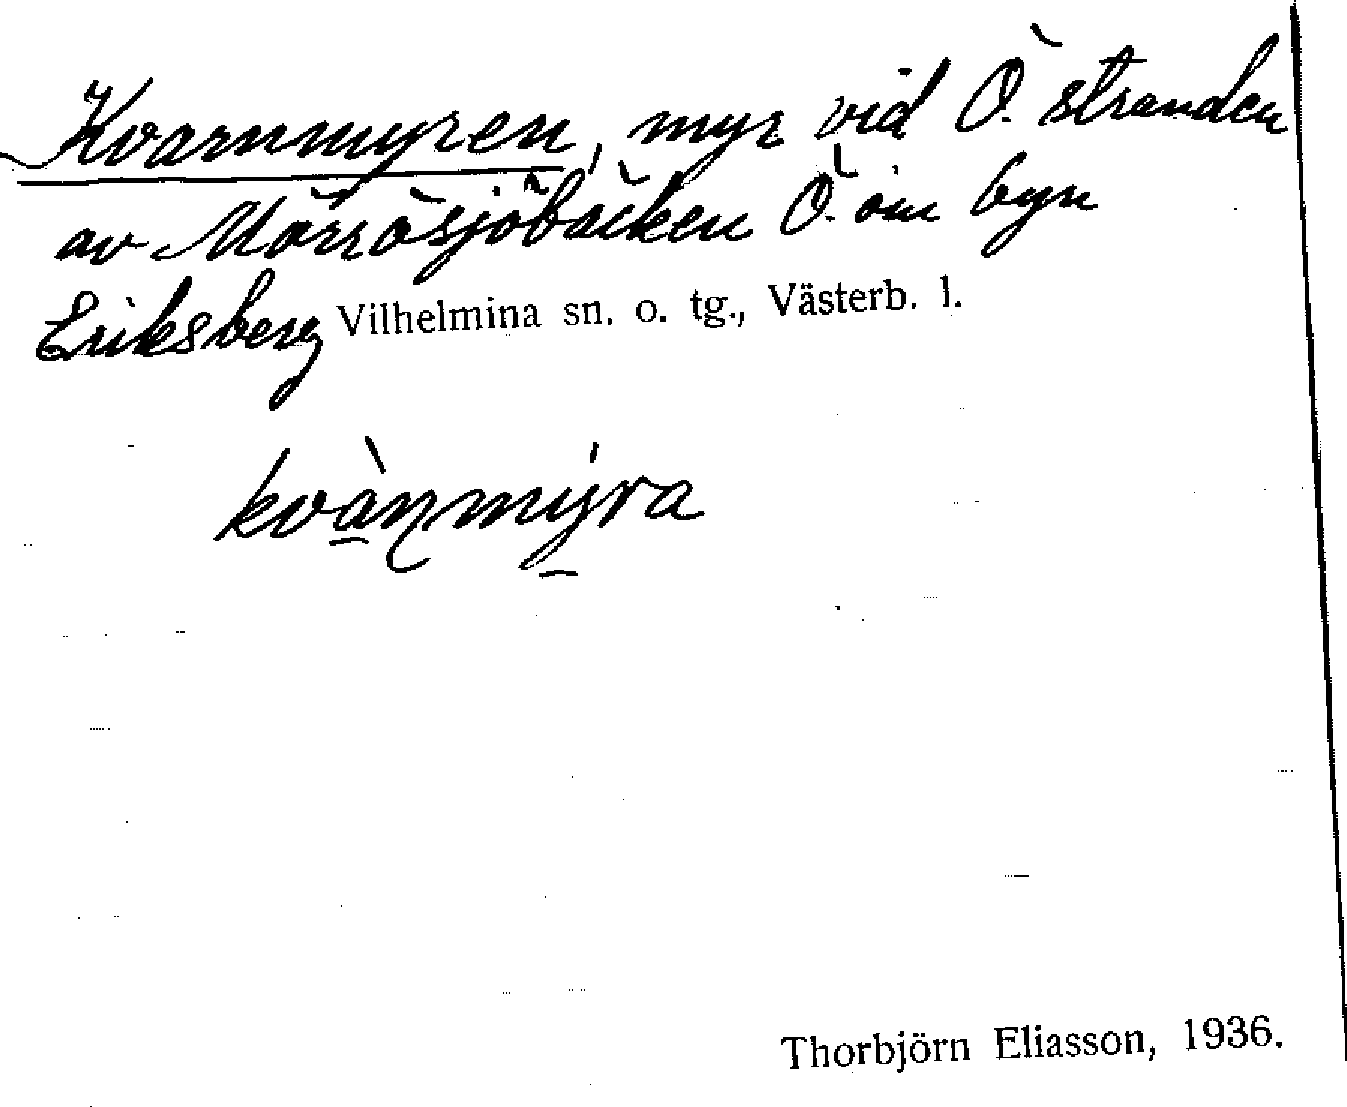 Kvarnmyren, myr vid Ö. stranden
av Mörrösjöbäcken Ö. om byn
Eriksberg Vilhelmina sn. o. tg., Västerb. l.
kvànmýra
Thorbjörn Eliasson, 1936.